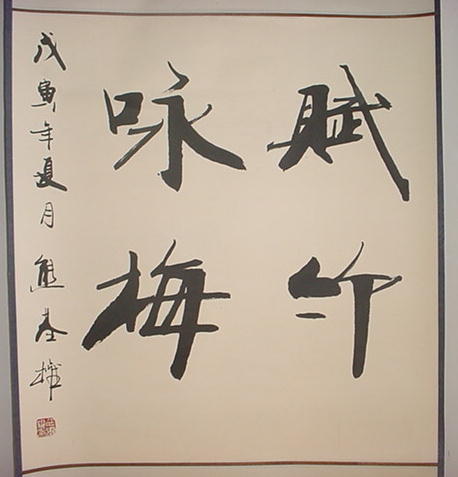 賦竹
咏梅
戊寅年夏月 熊基權